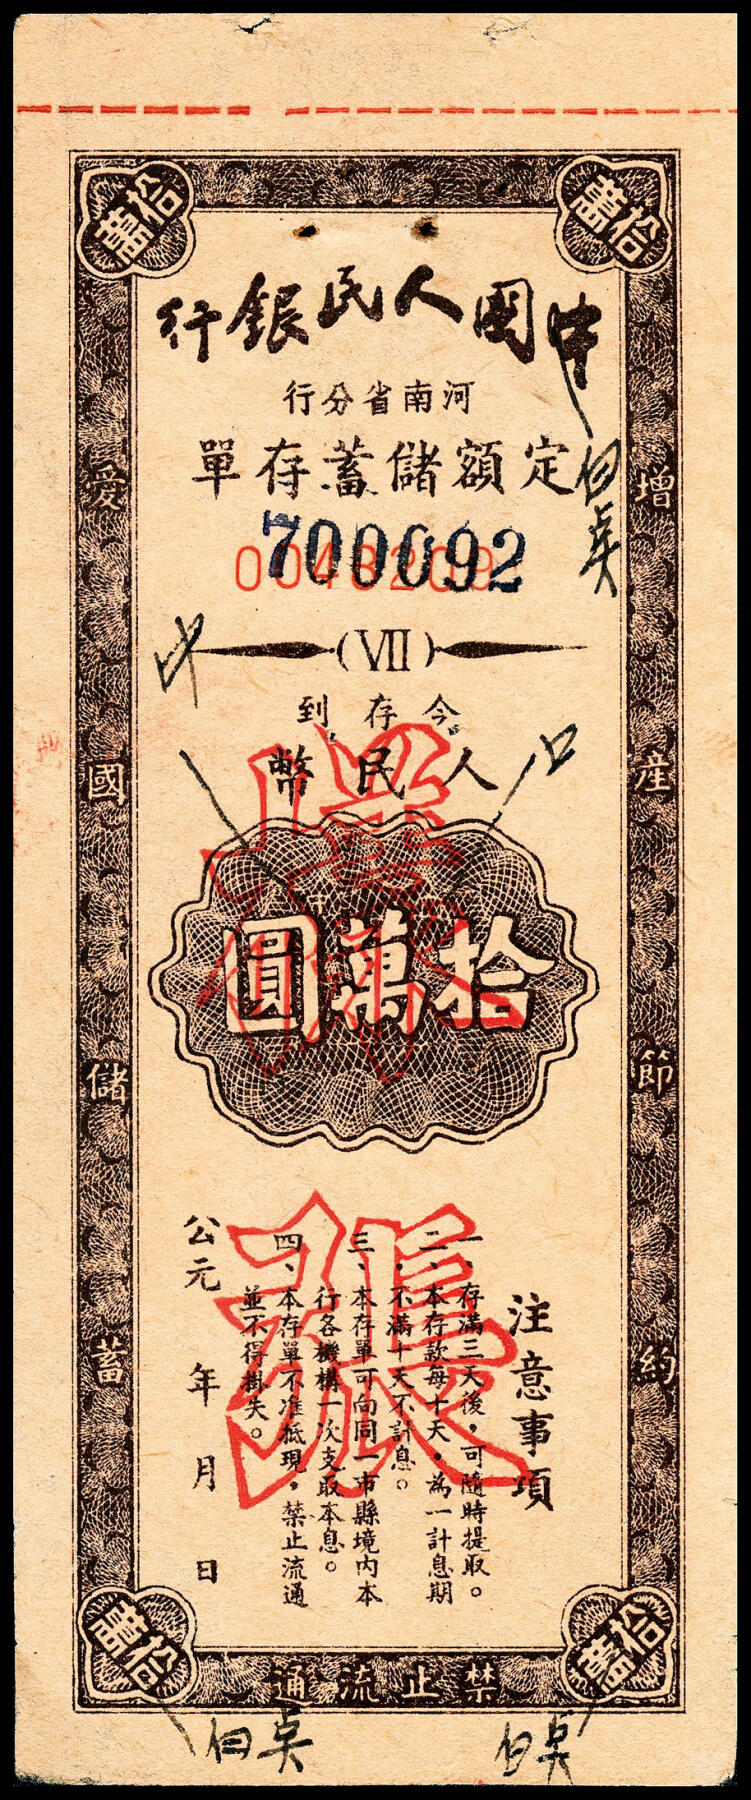 拾萬
拾萬
中國人民銀行
河南省分行
定額儲蓄存單
700092
(VII)
今存到
人民幣
拾萬圓
樣
張
注意事項
一、存滿三天後，可隨時提取。
二、本存款每十天，為一計息期
，不滿十天不計息。
三、本存單可向同一市縣境內本
行各機構一次支取本息。
四、本存單不准抵現，禁止流通
並不得掛失。
公元 年 月 日
增產節約
愛國儲蓄
拾萬
拾萬
禁止流通
白点
白点